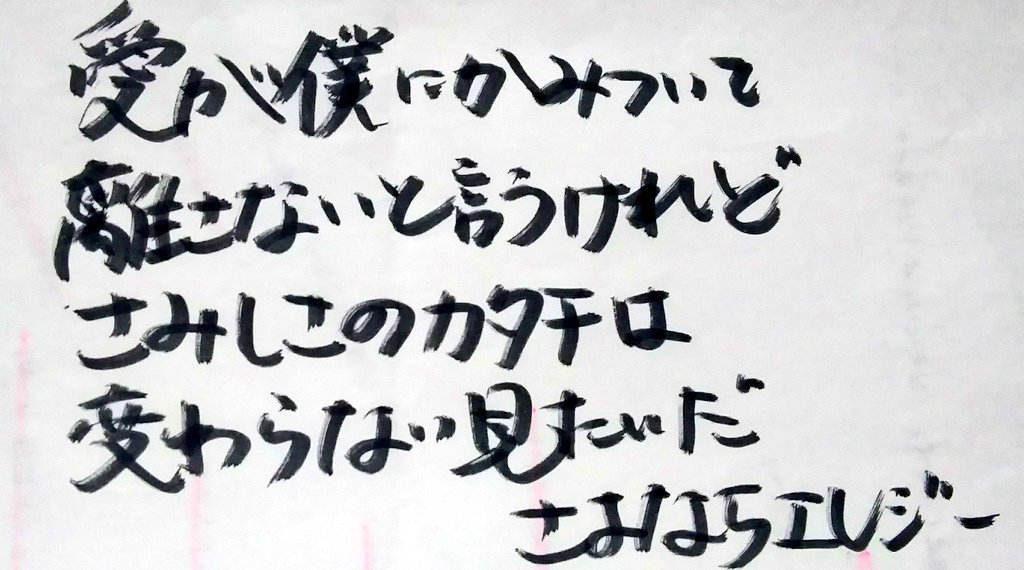 愛が僕にかみついて
離さないと言うけれど
さみしさのカタチは
変わらない見たいだ
さよならエレジー